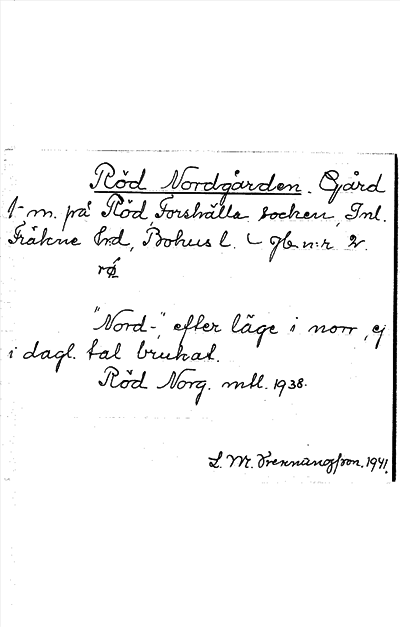 Röd Nordgården. Gård
1-m. på Röd, Forshälla socken, Inl.
Fräkne hd, Bohus l. Jb n:r 2.
rø
"Nord-", efter läge i norr, ej
i dagl. tal brukat.
Röd Norg. mtl. 1938.
L. M. Svenungsson. 1941.